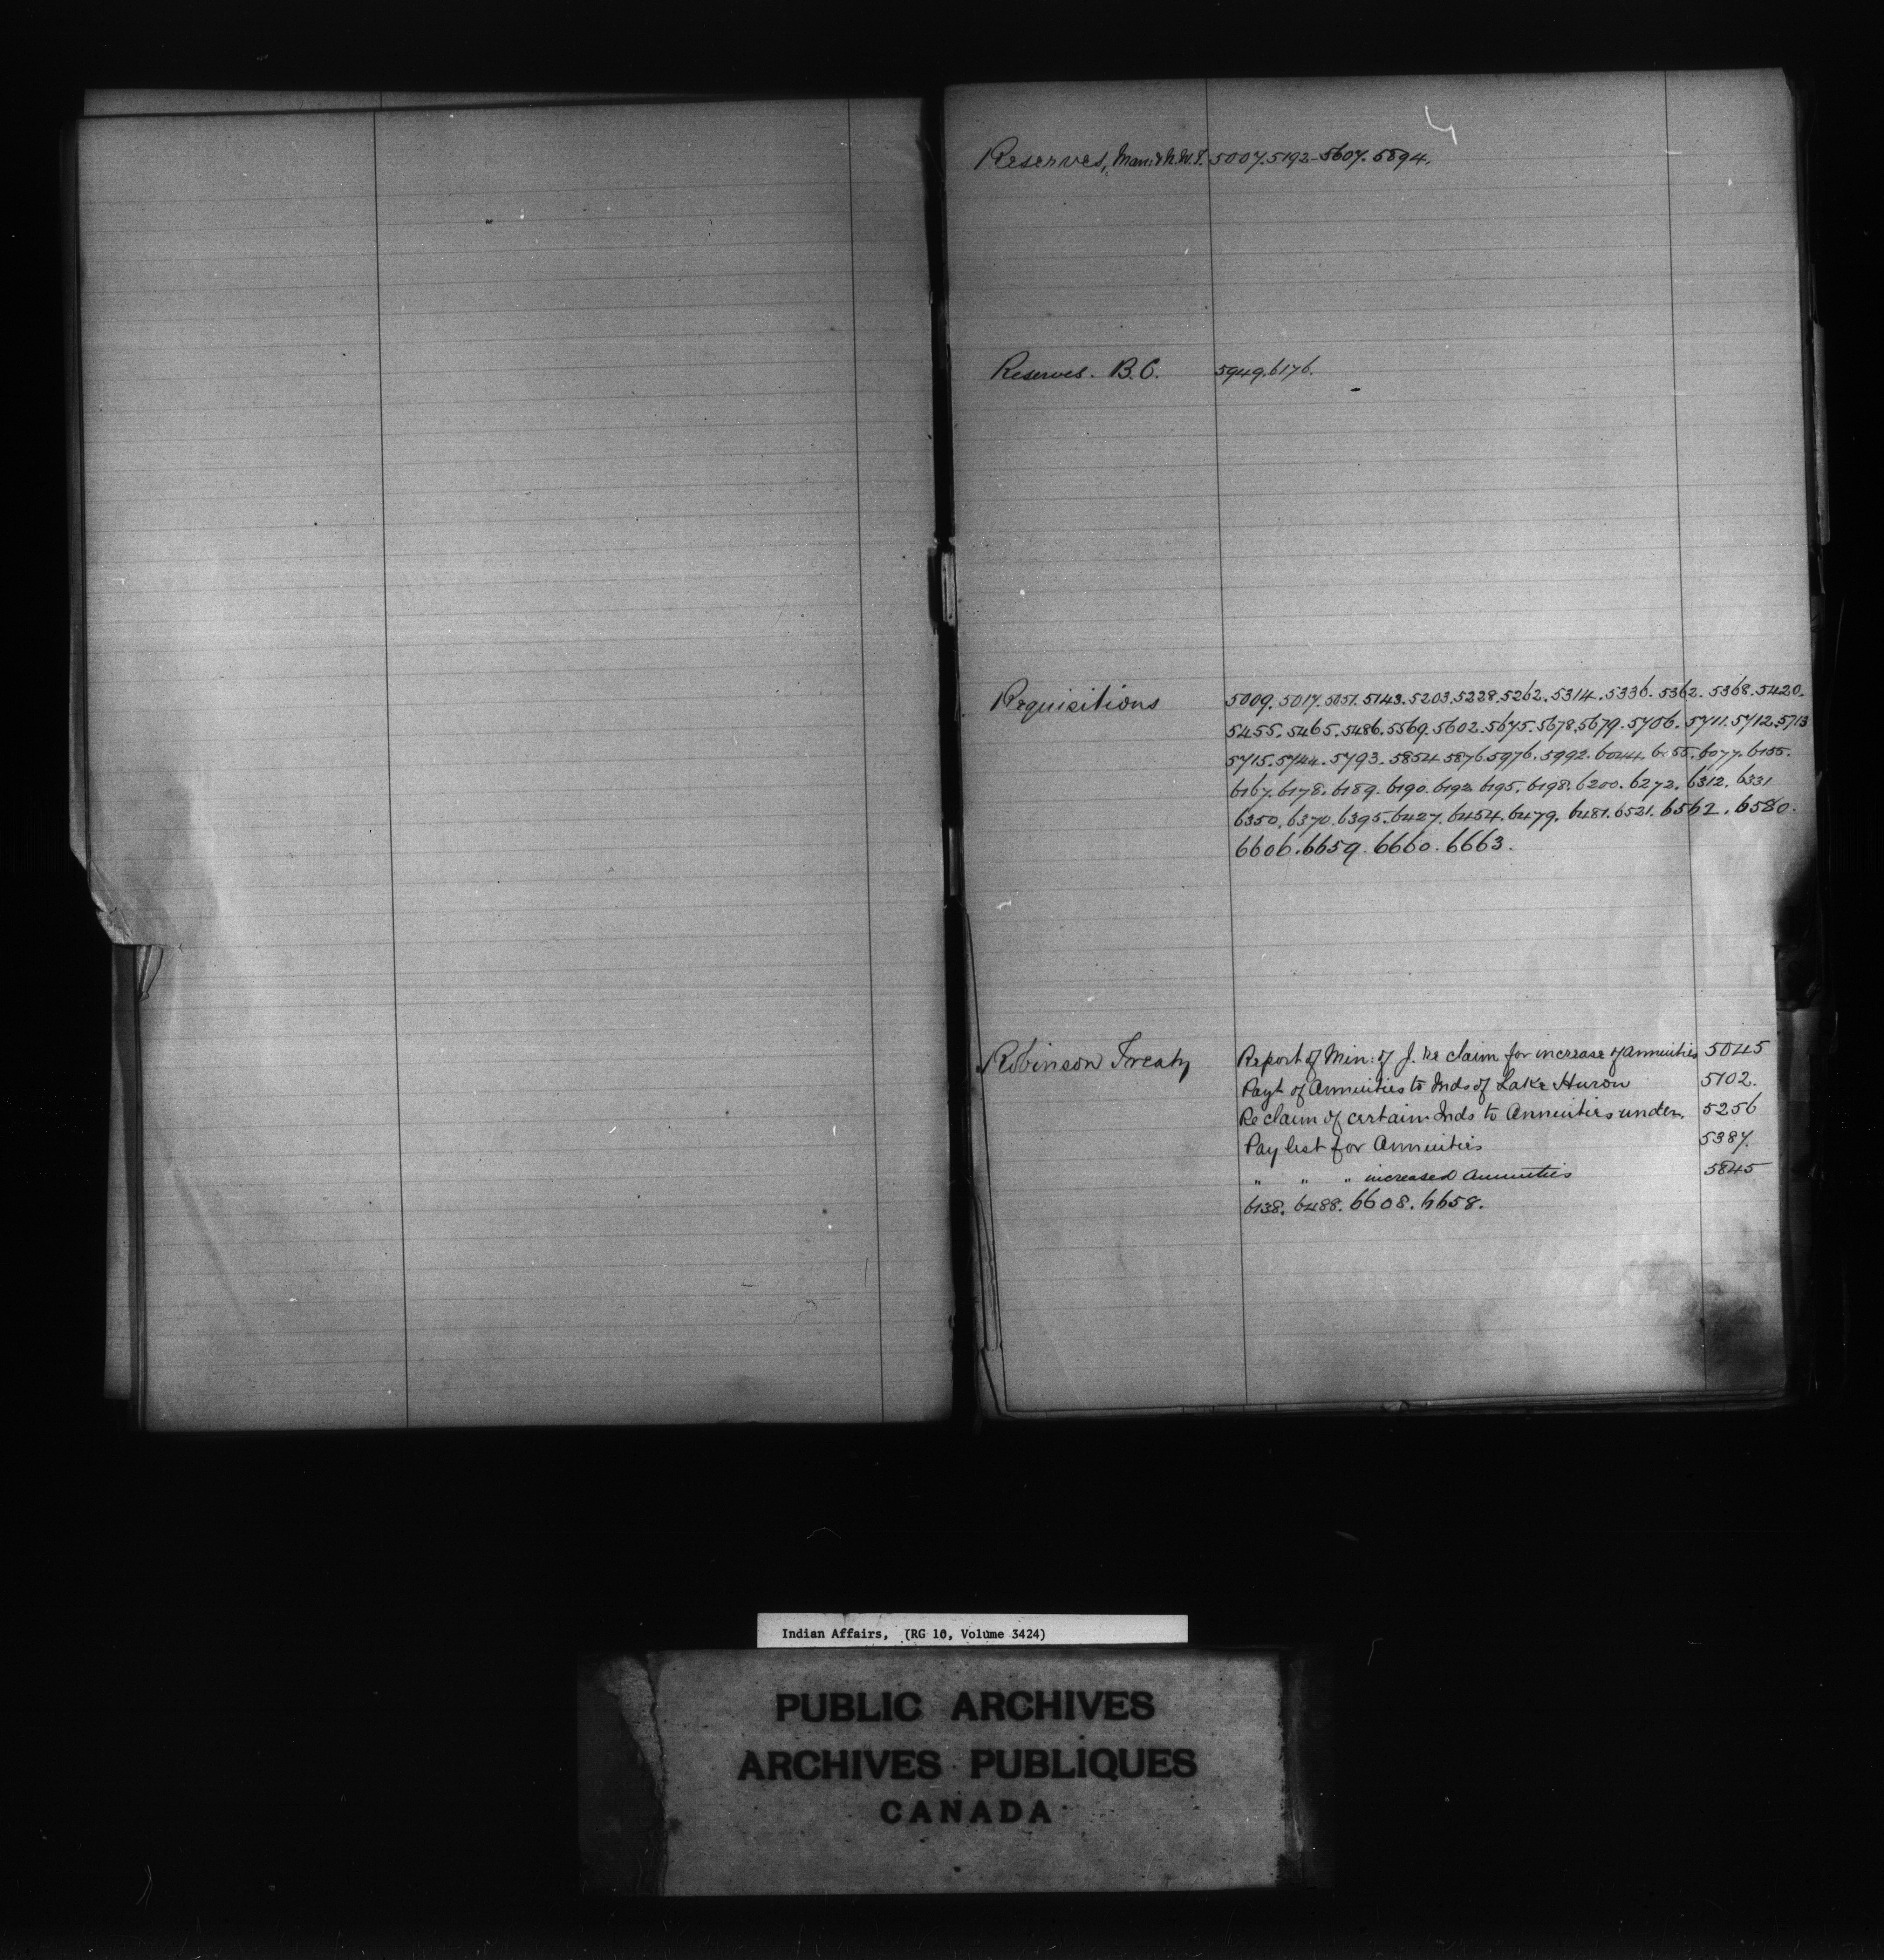 Reserves, Man: & N.W.T. 5007. 5192 - 5607. 5894.
Reserves. B.C. 5949. 6176.
Requisitions 5009. 5017. 5051. 5143. 5203. 5228. 5262. 5314. 5336. 5362. 5368. 5420.
5455. 5465. 5486. 5569. 5602. 5675. 5678. 5679. 5706. 5711. 5712. 5713
5715. 5744. 5793. 5854 5876 5976. 5992. 6044. 6055. 6077. 6155.
6167. 6178. 6189. 6190. 6192. 6195. 6198. 6200. 6272. 6312. 6331
6350. 6370. 6395. 6427. 6454. 6479. 6481. 6521. 6562. 6580.
6606. 6659. 6660. 6663.
Robinson Treaty Report of Min: of J. re claim for increase of annuities 5045
Payt of Annuities to Inds of Lake Huron 5102.
Re claim of certain Inds to Annuities under. 5256
Pay list for Annuities 5387.
" " " increased Annuities 5845
6138. 6488. 6608. 6658.
Indian Affairs, (RG 10, Volume 3424)
PUBLIC ARCHIVES
ARCHIVES PUBLIQUES
CANADA